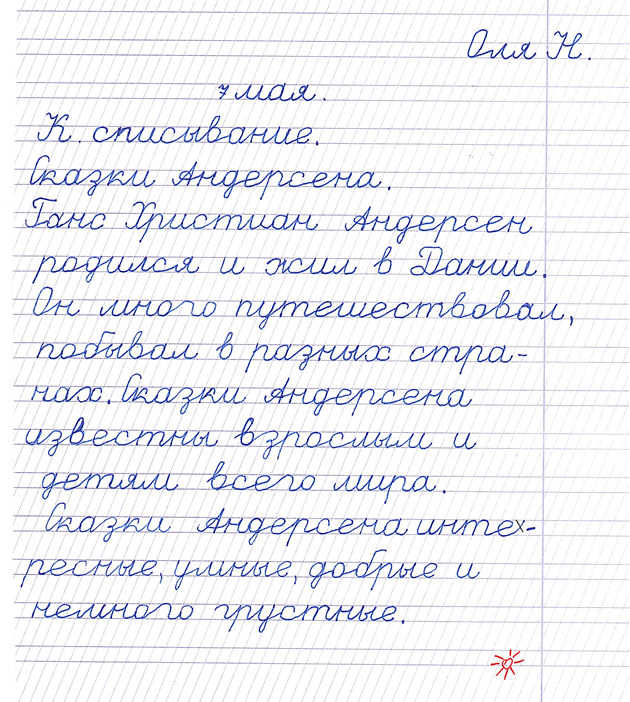 Оля Н.
7 мая.
К. списывание.
Сказки Андерсена.
Ганс Христиан Андерсен
родился и жил в Дании.
Он много путешествовал,
побывал в разных стра-
нах. Сказки Андерсена
известны взрослым и
детям всего мира.
Сказки Андерсена интех-
ресные, умные, добрые и
немного грустные.